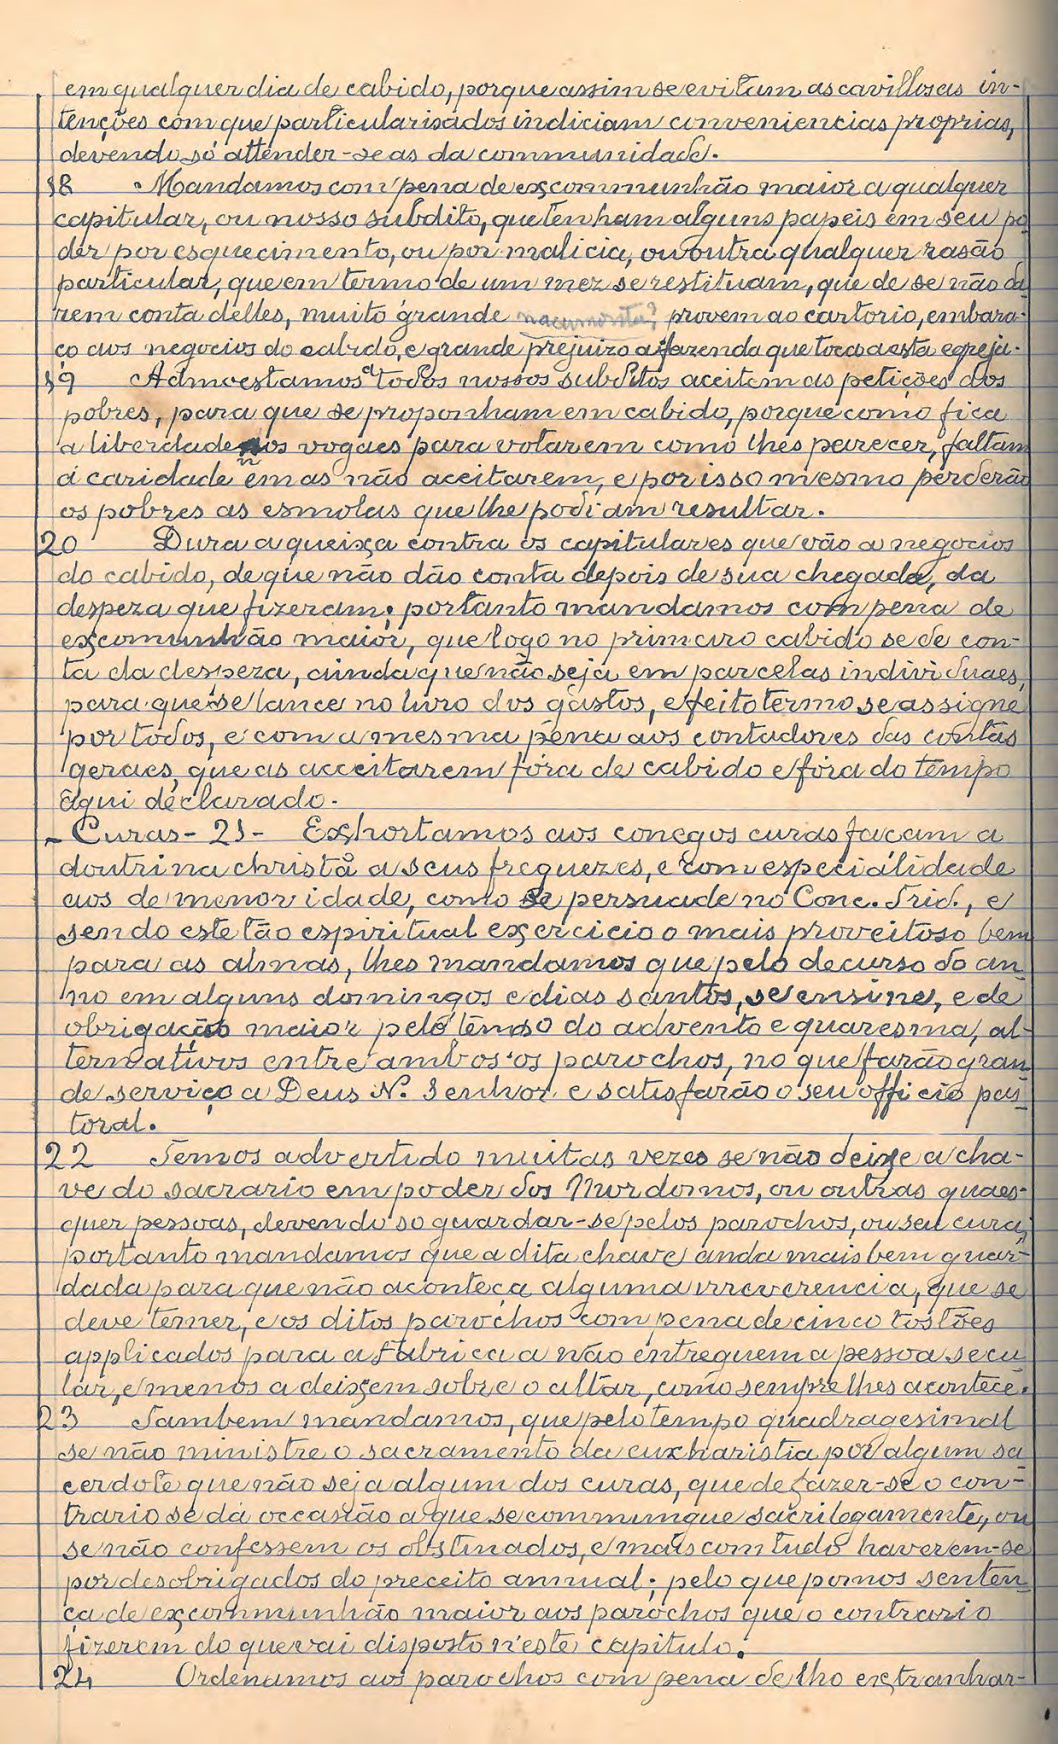 em qualquer dia de cabido, porque assim se evitam as cavillosas in-
tenções com que particularisados indiciam conveniencias proprias,
devendo só attender-se as da communidade.
18 Mandamos com pena de excommunhão maior a qualquer
capitular, ou nosso subdito, que tenham alguns papeis em seu po
der por esquecimento, ou por malicia, ou outra qualquer rasão
particular, que em termo de um mez se restituam, que de se não da
rem conta delles, muito grande provem ao cartorio, embara-
ço aos negocios do cabido, e grande prejuizo a fazenda que toca a esta egreja.
19 Admoestamos a todos nossos subditos aceitem as petições dos
pobres, para que se proponham em cabido, porque como fica
a liberdade nos vogaes para votarem como lhes parecer, faltam
á caridade em as não aceitarem, e por isso mesmo perderão
os pobres as esmolas que lhe podiam resultar.
20 Dura a queixa contra os capitulares que vão a negocios
do cabido, de que não dão conta depois de sua chegada, da
despeza que fizeram; portanto mandamos com pena de
excomunhão maior, que logo no primeiro cabido se de con-
ta da despeza, ainda que não seja em parcelas individuaes,
para que se lance no livro dos gastos, e feito termo se assigne
por todos, e com a mesma pena aos contadores das contas
geraes, que as acceitarem fóra de cabido e fóra do tempo
aqui declarado.
- Curas - 21 - Exhortamos aos conegos curas facam a
doutrina christã a seus freguezes, e com especialidade
aos de menor idade, como se persuade no Conc. Trid., e
sendo este tão espiritual exercicio o mais proveitoso bem
para as almas, lhes mandamos que pelo decurso do an
no em alguns domingos e dias santos, se ensine, e de
obrigação maior pelo tempo do advento e quaresma, al-
ternativos entre ambos os parochos, no que farão gran
de serviço a Deus N. Senhor e satisfarão o seu officio pas
toral.
22 Temos advertido muitas vezes se não deixe a cha-
ve do sacrario em poder dos Mordomos, ou outras quaes-
quer pessoas, devendo so guardar-se pelos parochos, ou seu cura,
portanto mandamos que a dita chave anda mais bem guar-
dada para que não aconteça alguma irreverencia, que se
deve temer, e os ditos parochos com pena de cinco tostões
applicados para a Fabrica a não entreguem a pessoa secu
lar, e menos a deixem sobre o altar, como sempre lhes acontece.
23 Tambem mandamos, que pelo tempo quadragesimal
se não ministre o sacramento da euxharistia por algum sa
cerdote que não seja algum dos curas, que de fazer-se o con-
trario se dá occasião a que se commungue sacrilegamente, ou
se não confessem os obstinados, e mais com tudo haverem-se
por desobrigados do preceito annual; pelo que pomos senten
ça de excommunhão maior aos parochos que o contrario
fizerem do que vai disposto n'este capitulo.
24 Ordenamos aos parochos com pena de lho extranhar-